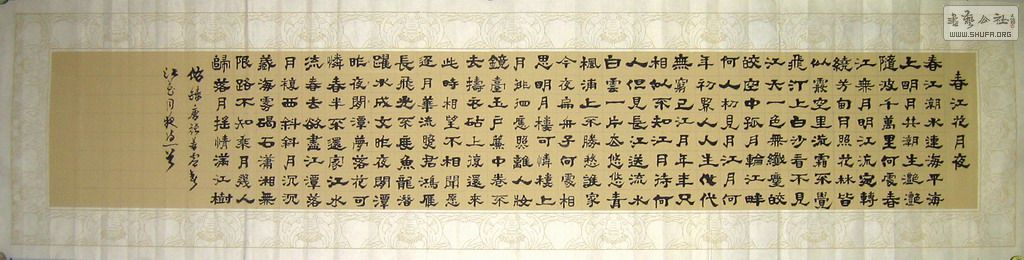 春江花月夜
春江潮水連海平海
上明月共潮生灧灧
隨波千萬里何處春
江無月明江流宛轉
繞芳甸月照花林皆
似霰空里流霜不覺
飛汀上白沙看不見
江天一色無纖塵皎
皎空中孤月輪江畔
何人初見月江月何
年初照人人生代代
無窮已江月年年只
相似不知江月待何
人但見長江送流水
白雲一片去悠悠青
楓浦上不勝愁誰家
今夜扁舟子何處相
思明月樓可憐樓上
月徘徊應照離人妝
鏡臺玉戶簾中卷不
去擣衣砧上還來
此時相望不相聞愿
逐月華流照君鴻雁
長飛光不度魚龍潛
躍水成文昨夜閒潭
昨夜閒潭夢落花可
憐春半不還家江水
流春去欲盡江潭落
月複西斜斜月沉沉
藏海霧碣石瀟湘無
限路不知乘月幾人
歸落月搖情滿江樹
書藝公社
WWW.SHUFA.ORG